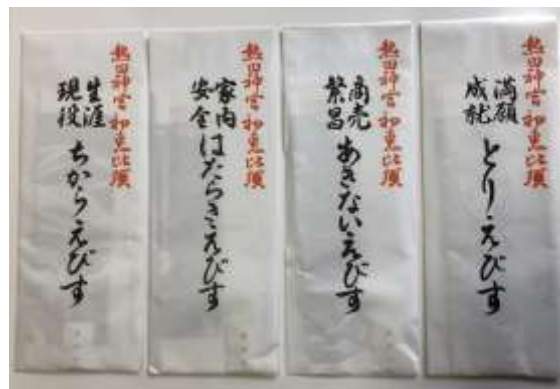 熱田神宮 初恵比須
満願
成就
とりえびす
熱田神宮 初恵比須
商売
繁昌
あきないえびす
熱田神宮 初恵比須
家内
安全
はたらきえびす
熱田神宮 初恵比須
生涯
現役
ちからえびす